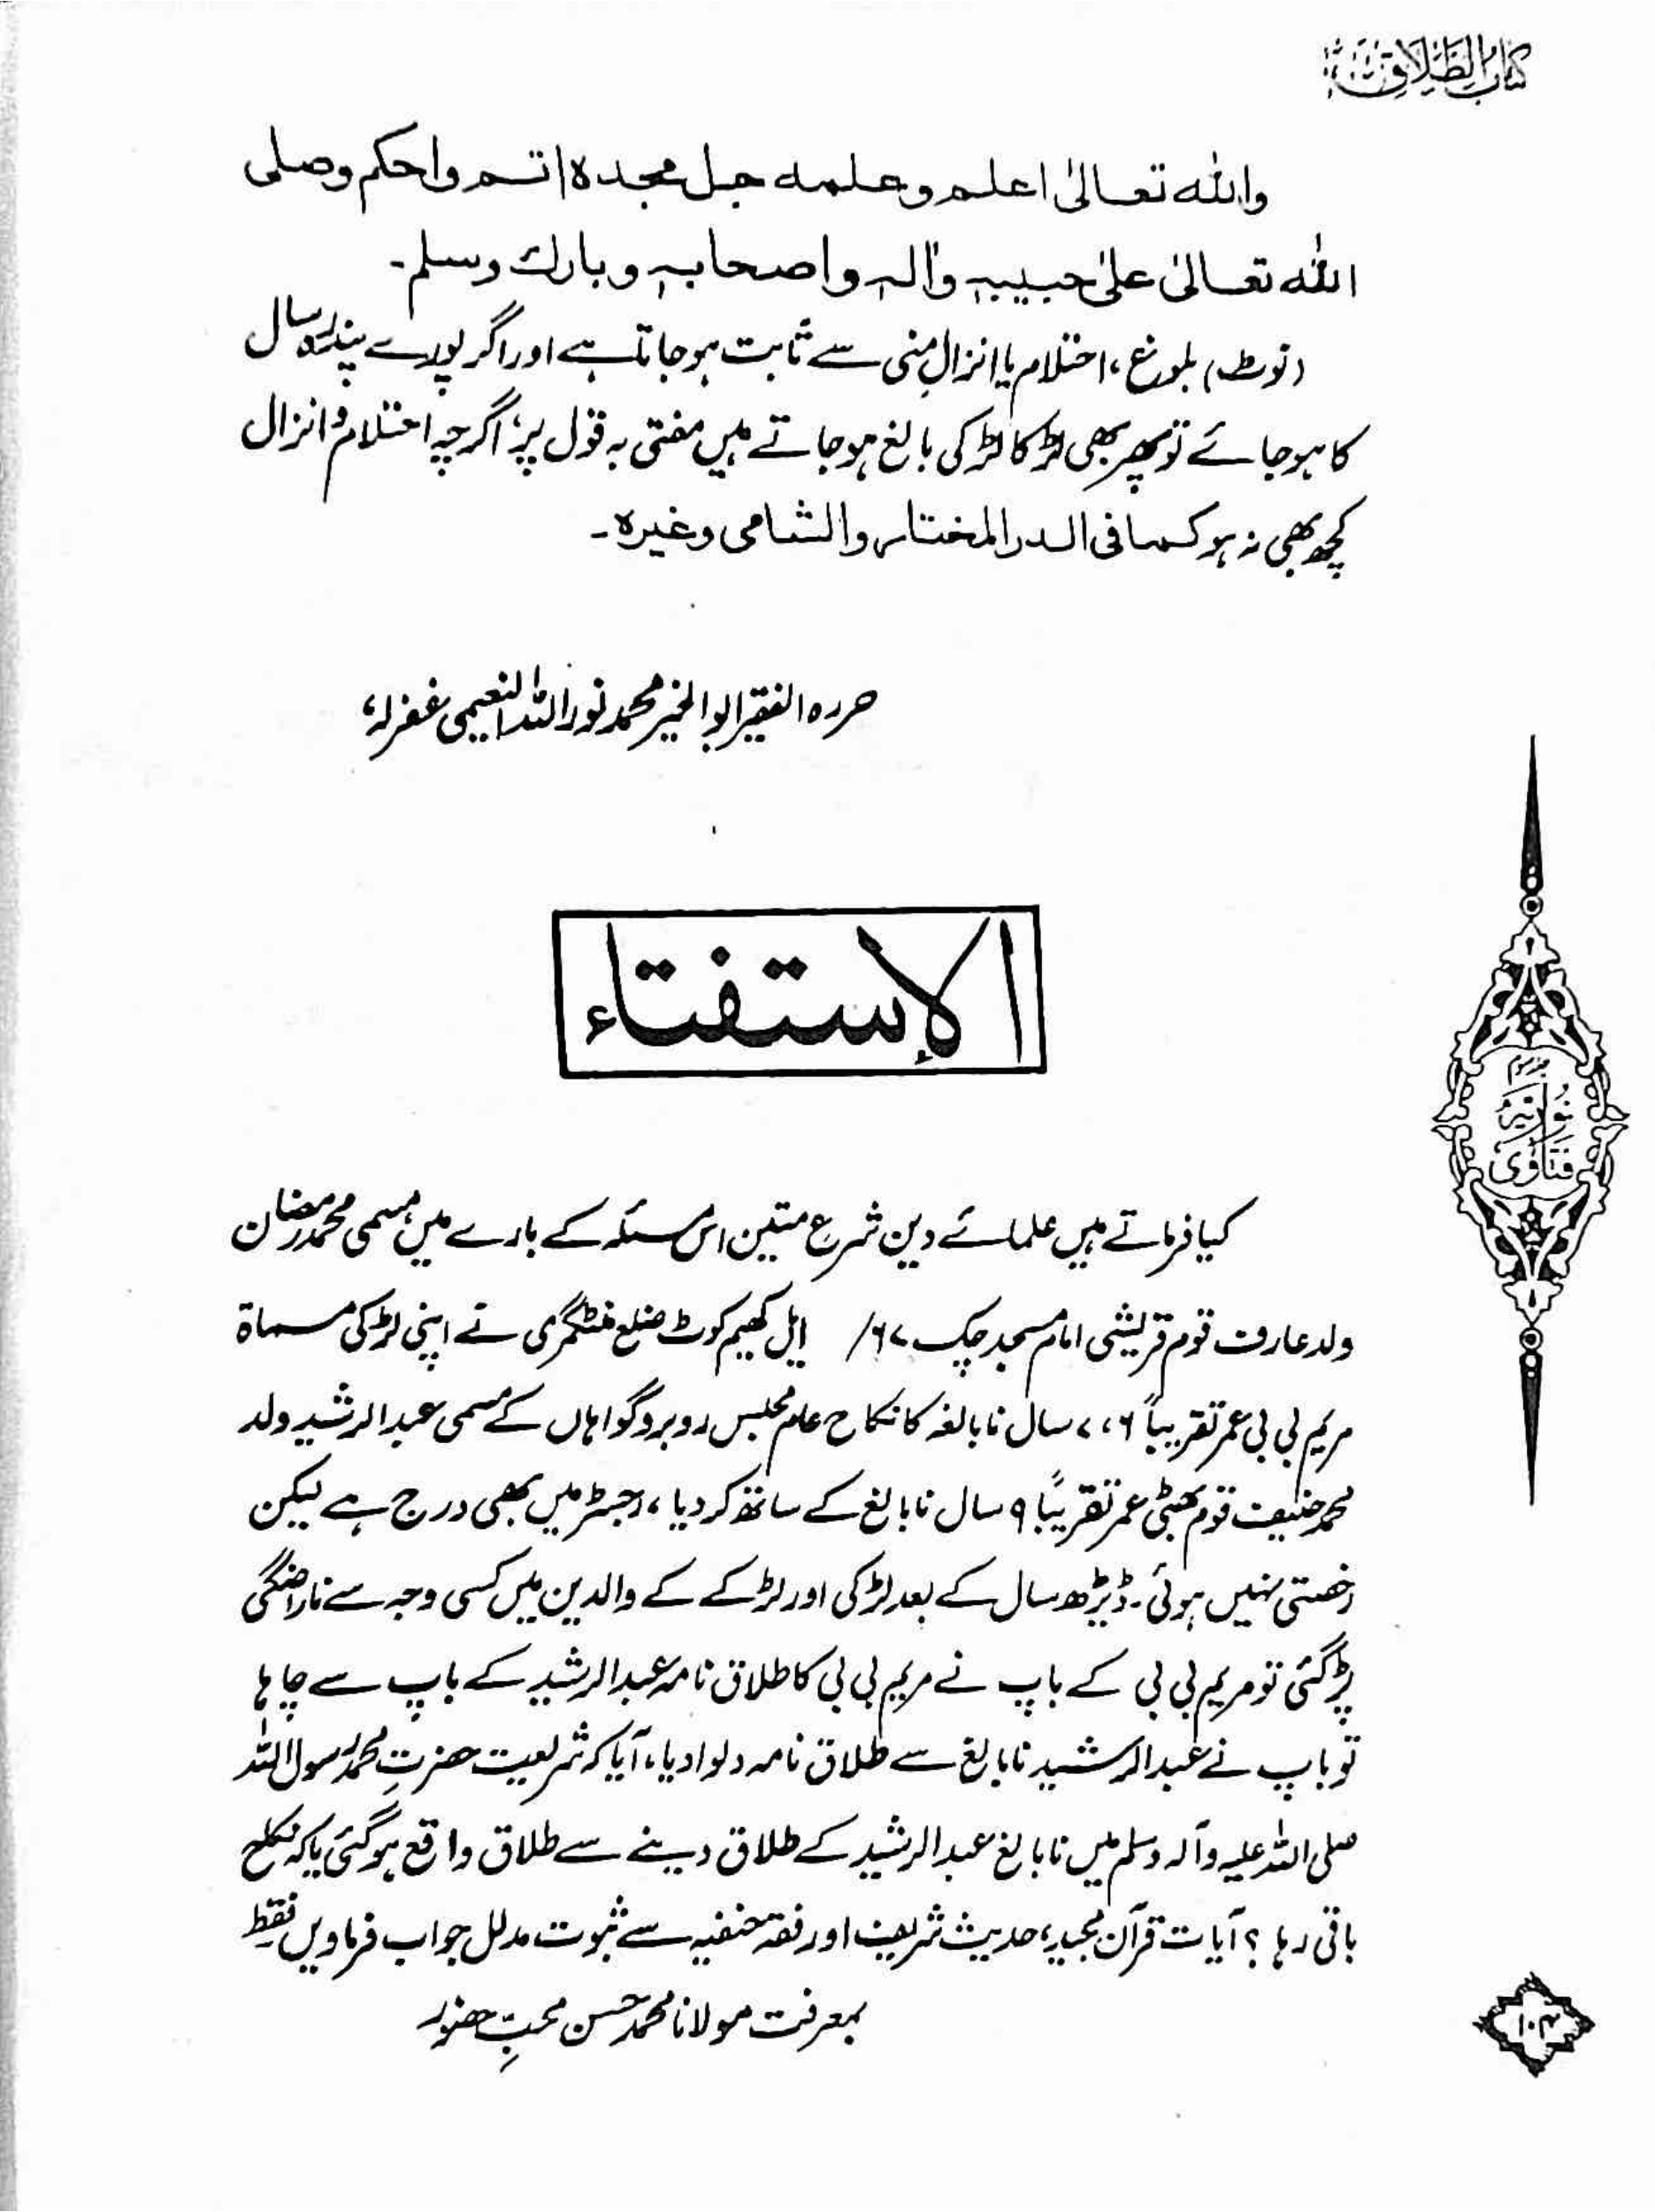 کتاب الطلاق
والله تعالیٰ اعلم وعلمه جل مجده اتم واحکم وصلی
الله تعالیٰ علیٰ حبیبہٖ واٰلہٖ واصحابہٖ وبارك وسلم۔
(نوٹ) بلوغ، احتلام یا انزالِ منی سے ثابت ہو جاتا ہے اور اگر پورے پندرہ سال
کا ہو جائے تو پھر بھی لڑکا لڑکی بالغ ہو جاتے ہیں مفتی بہ قول پر، اگرچہ احتلام و انزال
کچھ بھی نہ ہو کما فی الدر المختار والشامی وغیرہ۔
حررہ الفقیر ابوالخیر محمد نور اللہ النعیمی غفرلہ،
الإستفتاء
کیا فرماتے ہیں علمائے دین شرع متین اس مسئلہ کے بارے میں مسمی محمد رمضان
ولد عارف قوم قریشی امام مسجد چک ۶۷/ ایل کھیم کوٹ ضلع منٹگمری نے اپنی لڑکی مسماۃ
مریم بی بی عمر تقریباً ۶، ۷ سال نابالغہ کا نکاح عام مجلس روبرو گواہاں کے مسمی عبدالرشید ولد
محمد حنیف قوم بھٹی عمر تقریباً ۹ سال نابالغ کے ساتھ کر دیا، رجسٹر میں بھی درج ہے لیکن
رخصتی نہیں ہوئی۔ ڈیڑھ سال کے بعد لڑکی اور لڑکے کے والدین میں کسی وجہ سے ناراضگی
پڑ گئی تو مریم بی بی کے باپ نے مریم بی بی کا طلاق نامہ عبدالرشید کے باپ سے چاہا
تو باپ نے عبدالرشید نابالغ سے طلاق نامہ دلوا دیا، آیا کہ شریعت حضرتِ محمد رسول اللہ
صلی اللہ علیہ وآلہ وسلم میں نابالغ عبدالرشید کے طلاق دینے سے طلاق واقع ہو گئی یا کہ نکاح
باقی رہا؟ آیات قرآن مجید، حدیث شریف اور فقہ حنفیہ سے ثبوت مدلل جواب فرماویں فقط
بمعرفت مولانا محمد حسن محبِّ حضور
فتاوی نوریہ
۱۰۴